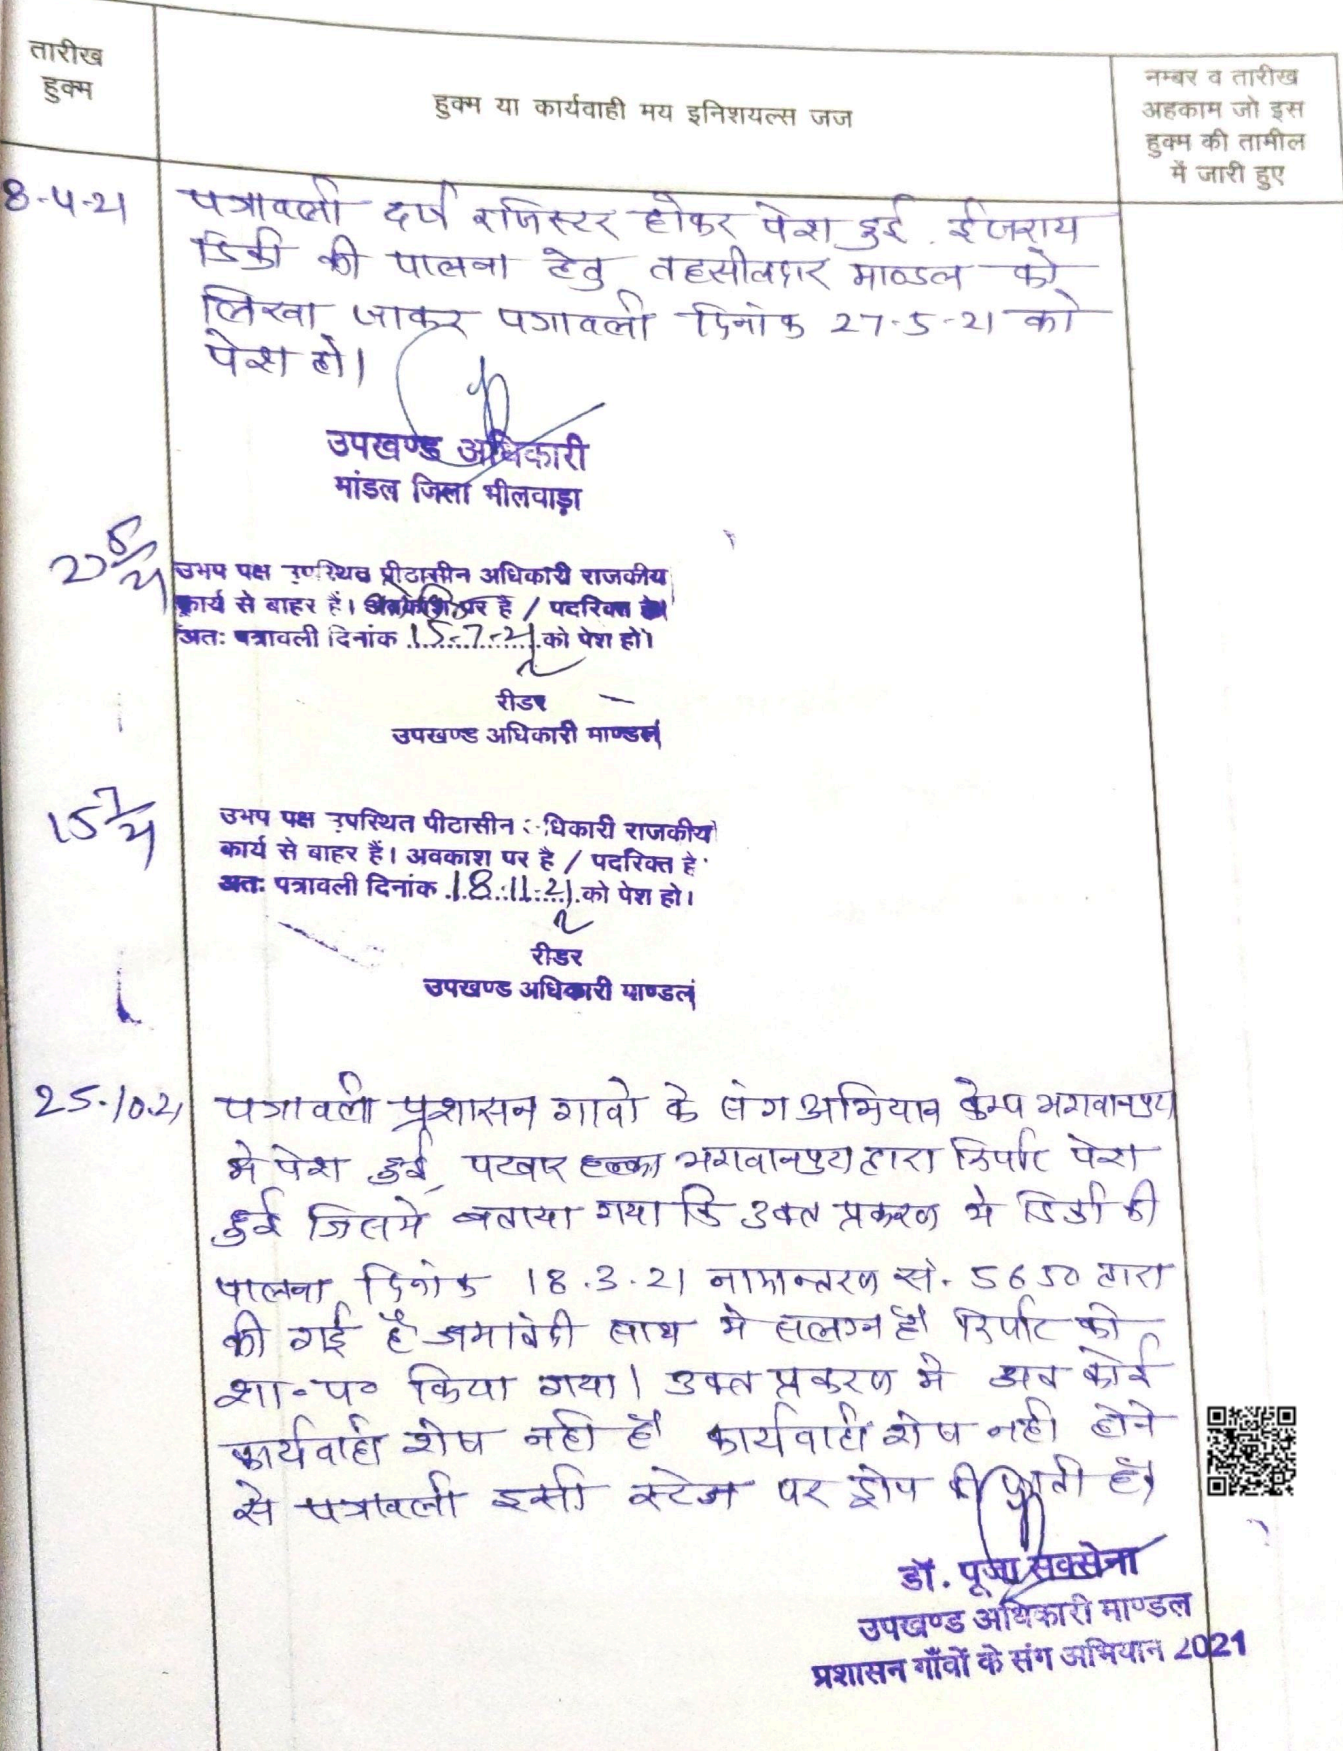 तारीख
हुक्म
हुक्म या कार्यवाही मय इनिशयल्स जज
नम्बर व तारीख
अहकाम जो इस
हुक्म की तामील
में जारी हुए
8-4-21 पत्रावली दर्ज रजिस्टर होकर पेश हुई. ईजराय
डिक्री की पालना हेतु तहसीलदार माण्डल को
लिखा जाकर पत्रावली दिनांक 27-5-21 को
पेश हो।
उपखण्ड अधिकारी
मांडल जिला भीलवाड़ा
उभप पक्ष उपस्थित पीठासीन अधिकारी राजकीय
कार्य से बाहर हैं। अवकाश पर है / पदरिक्त है।
अतः पत्रावली दिनांक 15-7-21 को पेश हो।
रीडर
उपखण्ड अधिकारी माण्डल
15 7/21
उभप पक्ष उपस्थित पीटासीन धिकारी राजकीय
कार्य से बाहर हैं। अवकाश पर है / पदरिक्त है
अतः पत्रावली दिनांक 18-11-21 को पेश हो।
रीडर
उपखण्ड अधिकारी माण्डल
25-10-21 पत्रावली प्रशासन गावो के संग अभियान केम्प भगवानपुरा
मे पेश हुई, पटवार हल्का भगवानपुरा द्वारा रिपोर्ट पेश
हुई जिसमे बताया गया कि उक्त प्रकरण मे डिक्री की
पालना दिनांक 18.3.21 नामान्तरण सं. 5650 द्वारा
की गई है जमाबंदी साथ मे सलग्न है। रिपोर्ट को
शा॰प॰ किया गया। उक्त प्रकरण मे अब कोई
कार्यवाही शेष नही है कार्यवाही शेष नही होने
से पत्रावली इसी स्टेज पर ड्रोप की जाती है।
डॉ. पूजा सक्सेना
उपखण्ड अधिकारी माण्डल
प्रशासन गाँवों के संग अभियान 2021